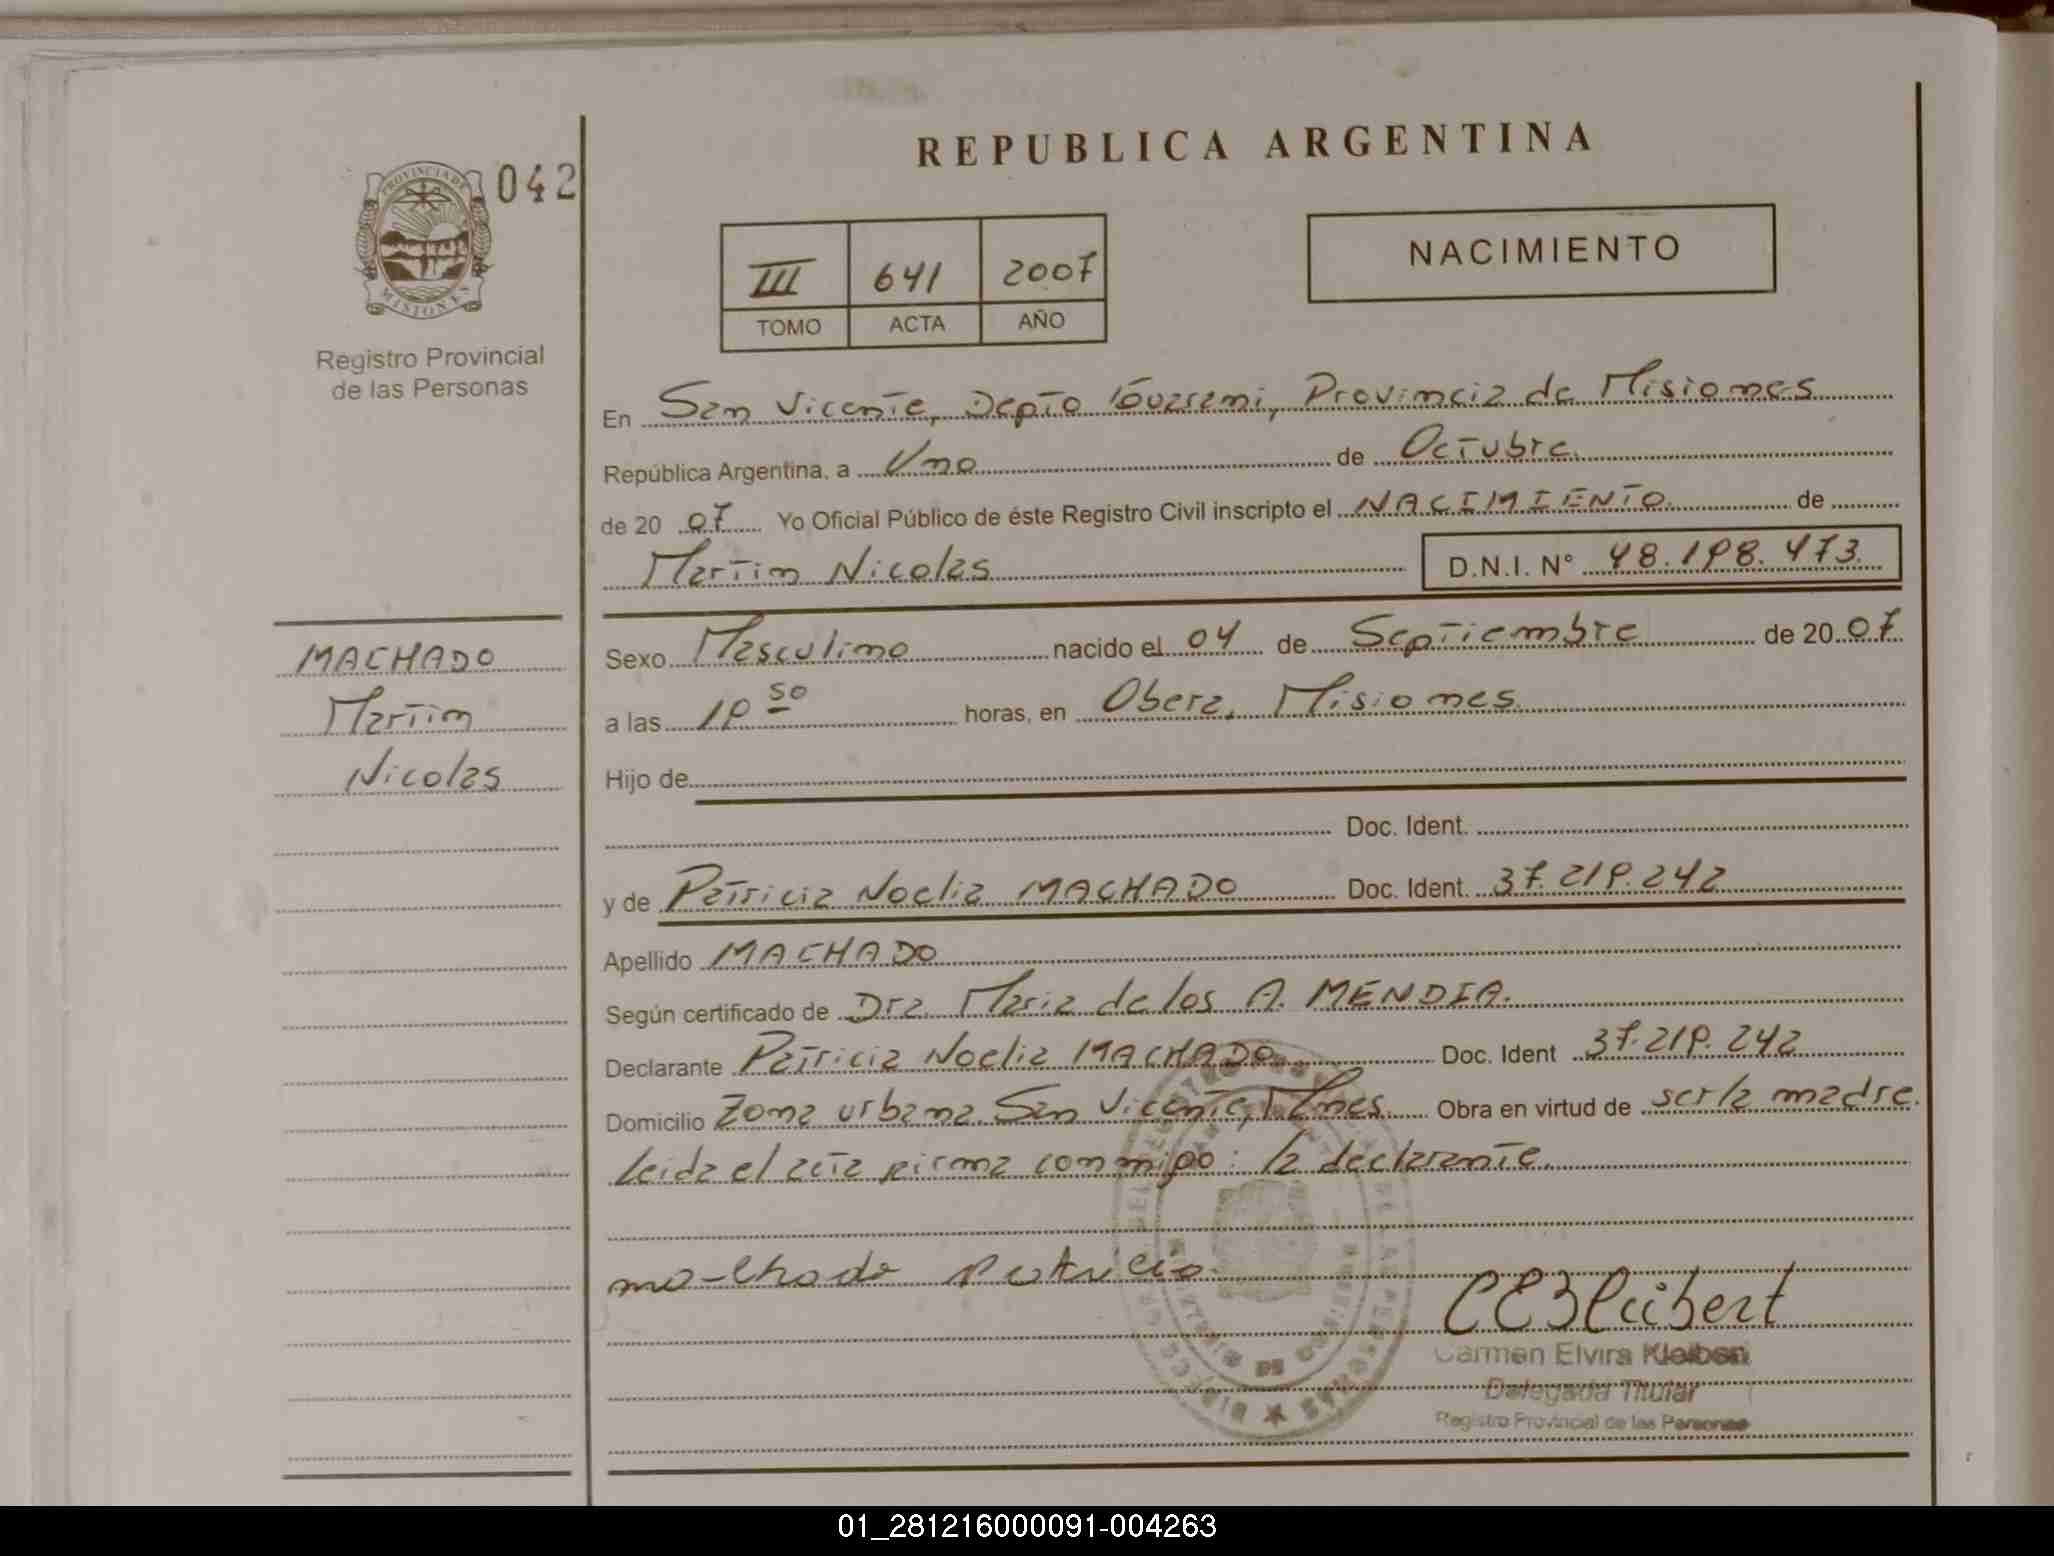 REPUBLICA ARGENTINA
042
PROVINCIA DE
MISIONES
Registro Provincial
de las Personas
III 641 2007
TOMO ACTA AÑO
NACIMIENTO
En San Vicente, Depto Guarani, Provincia de Misiones
República Argentina, a Uno de Octubre.
de 20 07 Yo Oficial Público de éste Registro Civil inscripto el NACIMIENTO. de
Martin Nicolas D.N.I. Nº 48.198.473.
MACHADO
Martin
Nicolas
Sexo Masculino nacido el 04 de Septiembre de 20 07
a las 19 50 horas, en Obera, Misiones.
Hijo de
Doc. Ident.
y de Patricia Noelia MACHADO Doc. Ident. 37.219.242
Apellido MACHADO
Según certificado de Dra. Maria de los A. MENDIA.
Declarante Patricia Noelia MACHADO Doc. Ident 37.219.242
Domicilio Zona urbana. San Vicente, Mnes. Obra en virtud de ser la madre.
leida el acta firma conmigo: la declarante.
machado Patricia
Carmen Elvira
Delegada Titular
Registro Provincial de las Personas
01_281216000091-004263